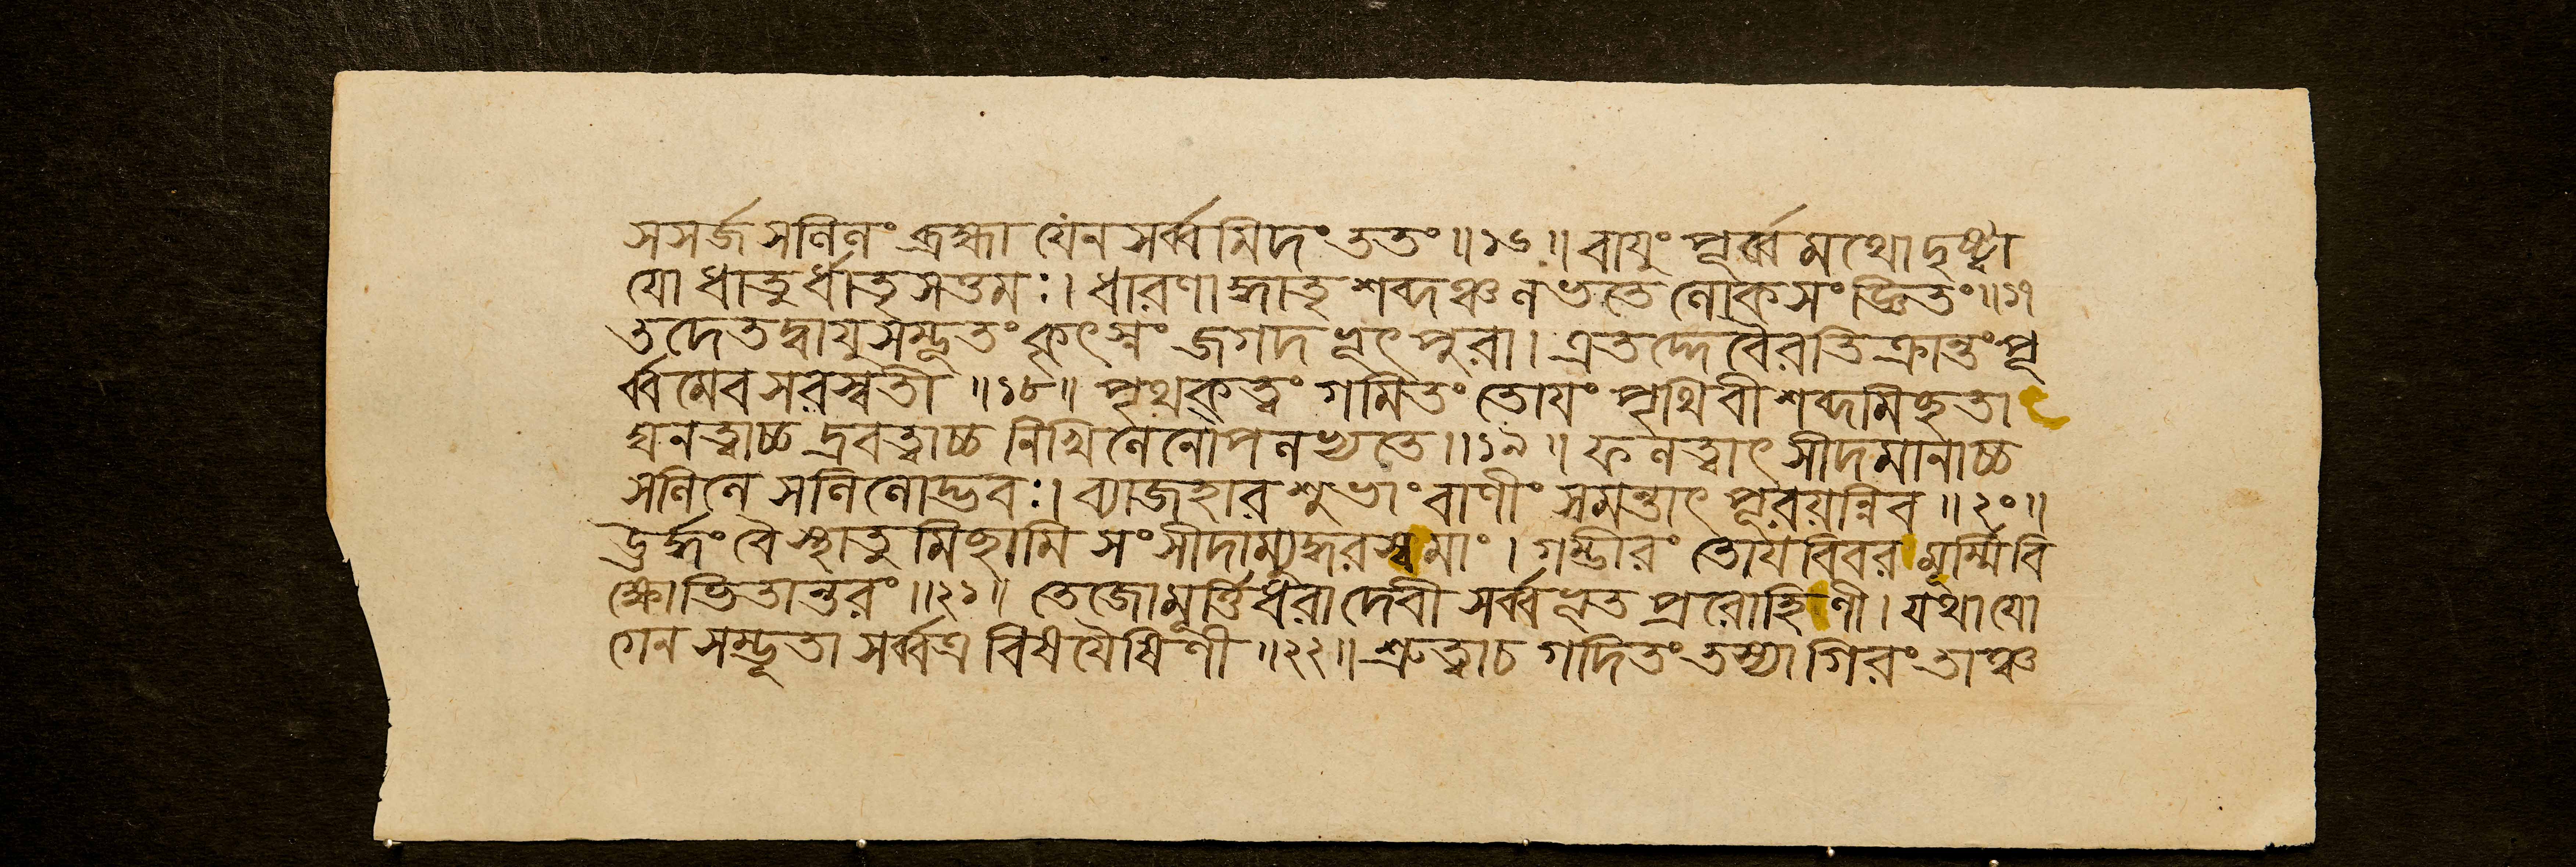 সসর্জ সলিলং ব্রহ্মা যেন সর্ব্বমিদং ততং॥১৬॥ বায়ুং পূর্ব্বমথো দৃষ্ট্বা
যো ধাতুর্ধাতৃসত্তমঃ। ধারণাদ্ধাতৃশব্দঞ্চ লভতে লোকসংজ্ঞিতং॥১৭
তদেতদ্বায়ুসম্ভূতং কৃৎস্নং জগদভূৎ পুরা। এতদ্দেবৈরতিক্রান্তং পূ
র্ব্বমেব সরস্বতী॥১৮॥ পৃথক্ত্বং গমিতং তোয়ং পৃথিবীশব্দমিচ্ছতা
ঘনত্বাচ্চ দ্রবত্বাচ্চ নিখিলেনোপলভ্যতে॥১৯॥ ফলত্বাৎ সীদমানাচ্চ
সলিলে সলিলোদ্ভবঃ। ব্যাজহার শুভাং বাণীং সমন্তাৎ পূরয়ন্নিব॥২০॥
ঊর্দ্ধং বৈ স্থাতুমিচ্ছামি সংসীদাম্যুদ্ধরস্ব মাং। গম্ভীরং তোয়বিবরমূর্ম্মিবি
ক্ষোভিতান্তরং॥২১॥ তেজোমূর্ত্তিধরা দেবী সর্ব্বভূতপ্ররোহিণী। যথাযো
গেন সম্ভূতা সর্ব্বত্র বিষয়ৈষিণী॥২২॥ শ্রুত্বা চ গদিতং তস্যা গিরং তাঞ্চ